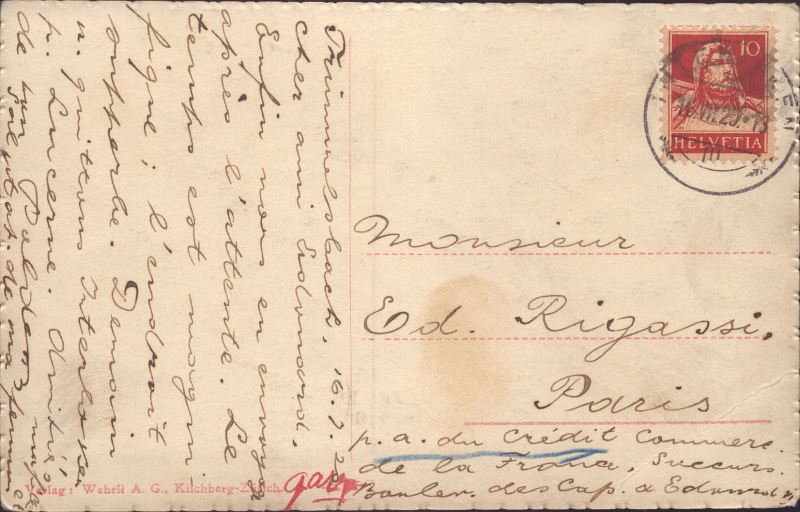 Trümmelbach, 16.7.25
cher ami Edouard,
Enfin nous en
après l'attente. Le
temps est magni
fique; l'endroit
superbe. Demain
n. quittons Interlaken
p. Lucerne. Amitiés
de ton
salutat. de ma femme et
10
16.VII.25.-13
HELVETIA
III
Monsieur
Ed. Rigassi,
Paris
p. a. du Crédit Commerc.
de la France, Succurs.
Boulev. des Cap. à Edouard VII
Verlag: Wehrli A. G., Kilchberg-Zürich.